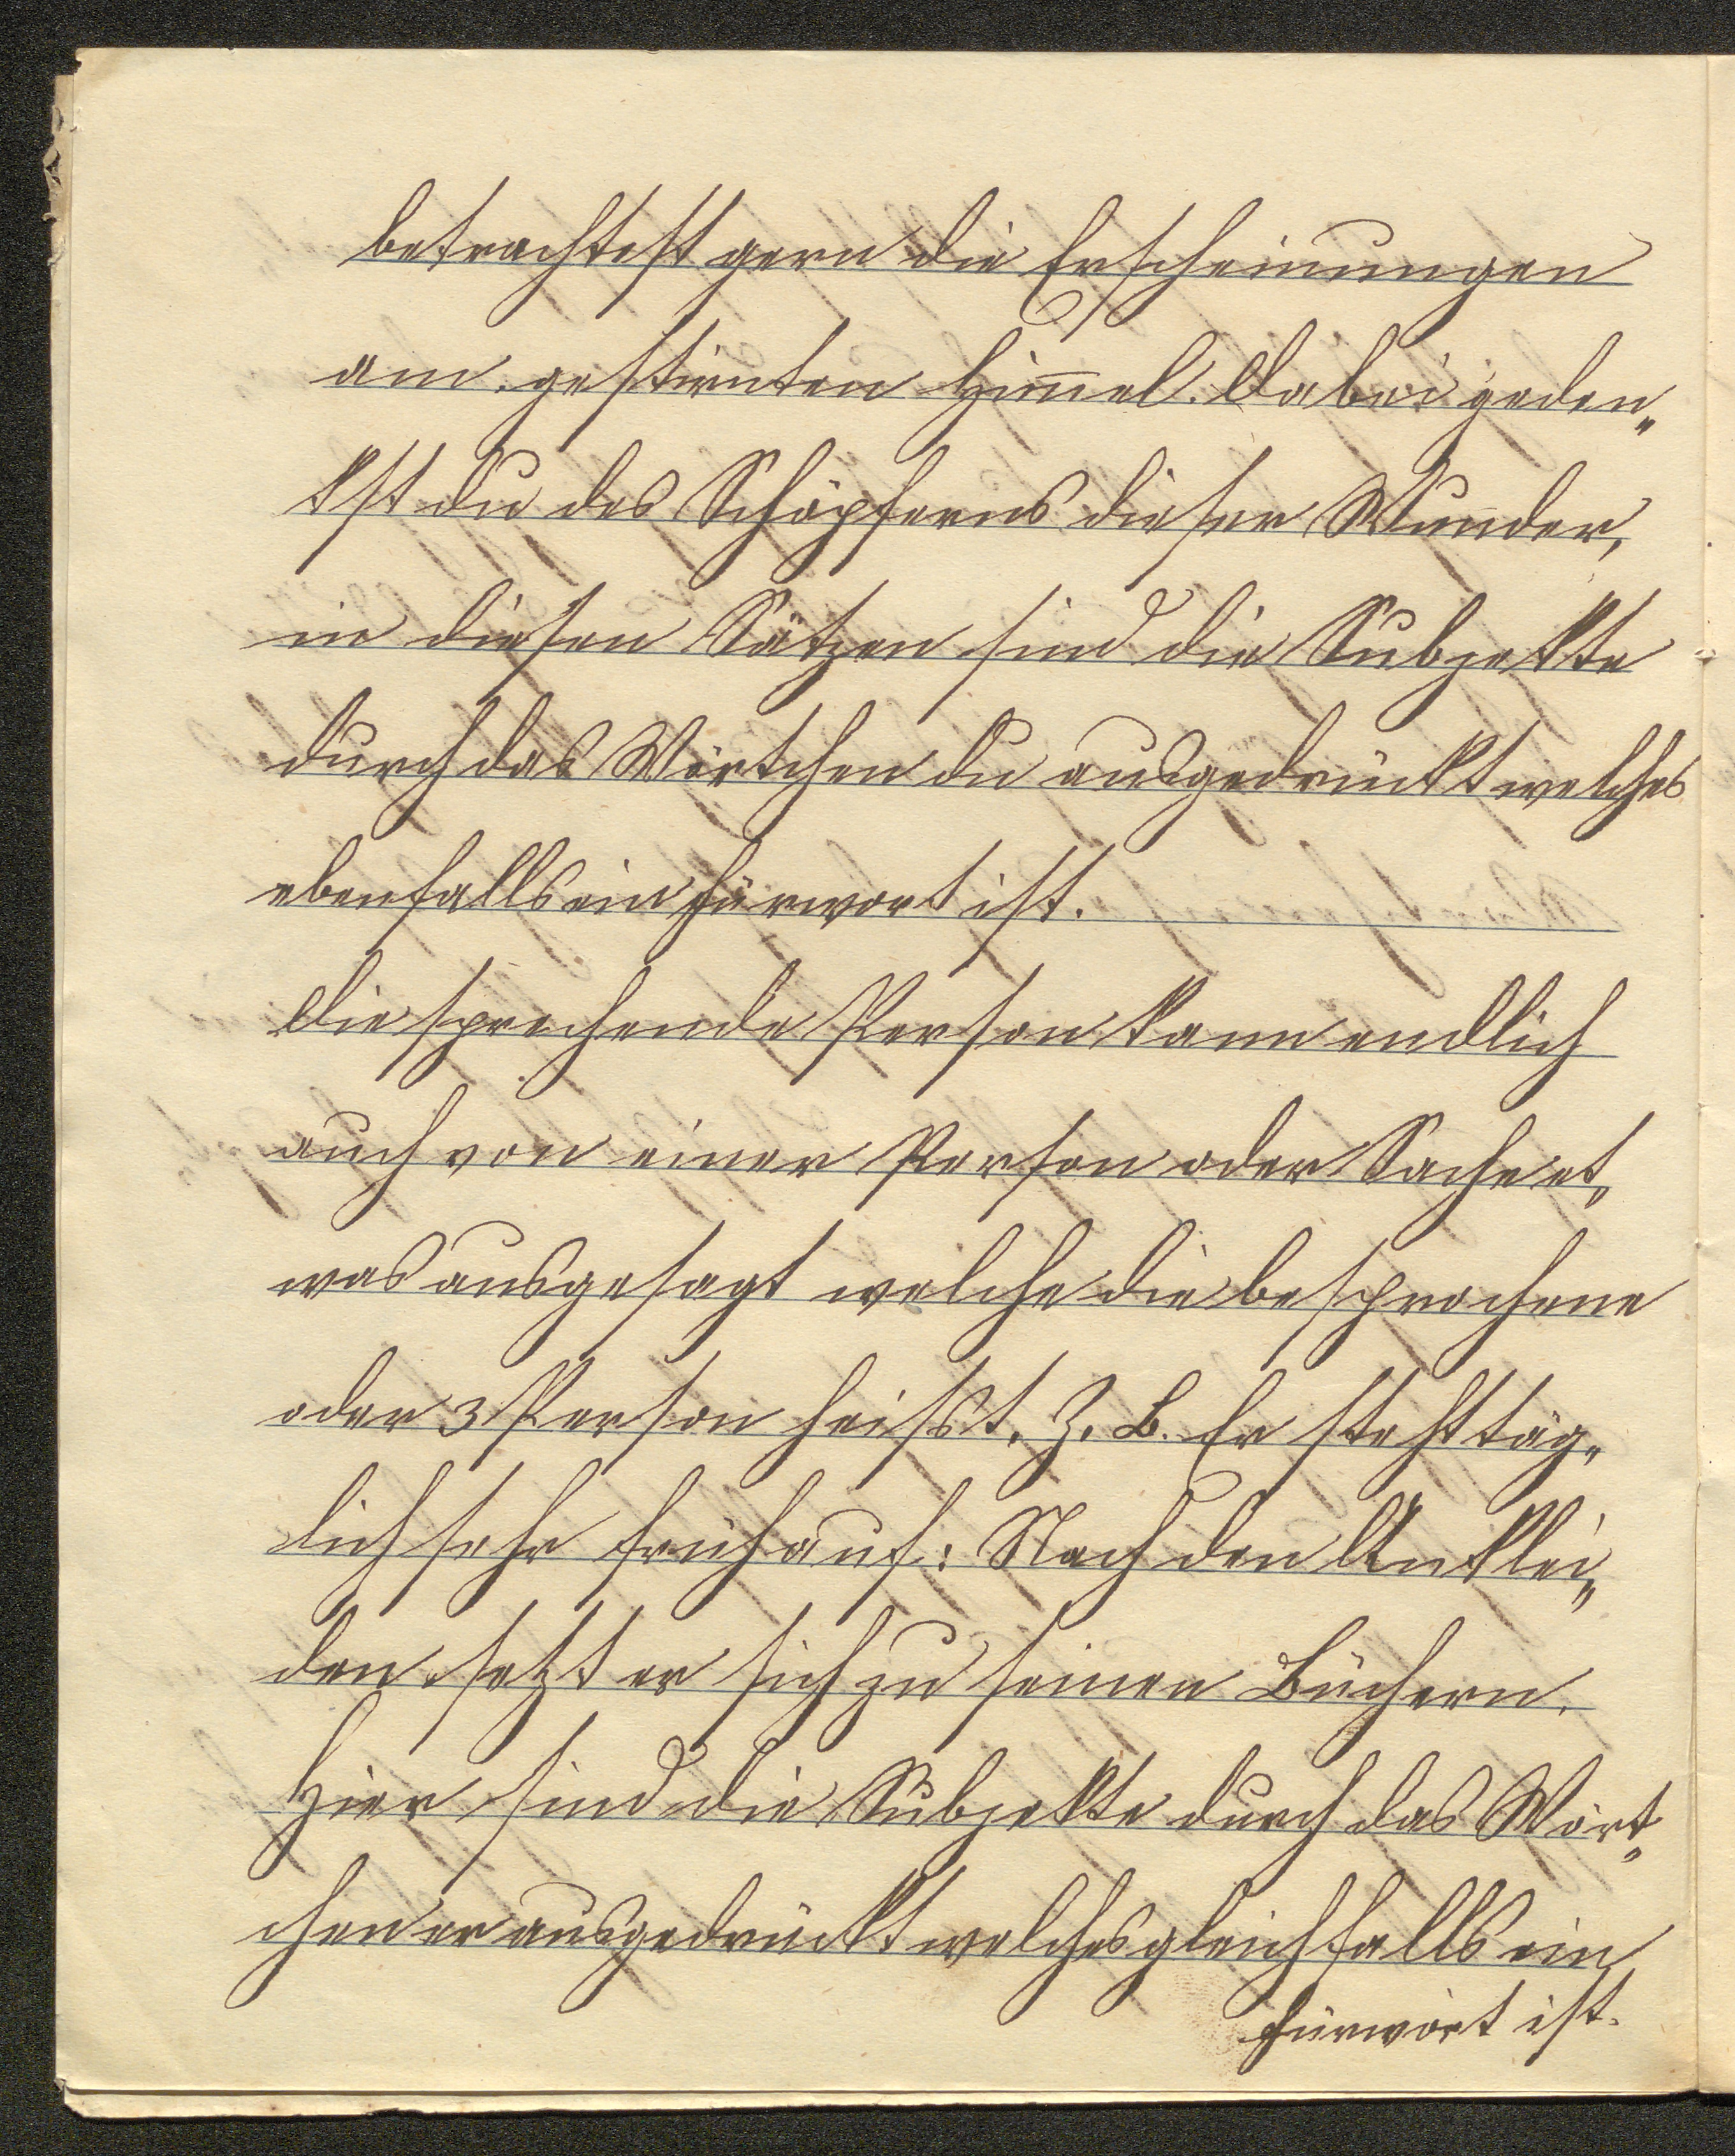 betrachtest gern die Erscheinungen
am gestirnten Him̅el. Dabei geden„
kst du des Schöpferns dieser Wunder,
in diesen Sätzen sind die Subjekte
durch das Wörtchen du ausgedrückt welches
ebenfalls ein Fürwort ist.
Die sprechende Person kann endlich
auch von einer Person oder Sache et„
was ausgesagt welche die besprochene
oder 3 Person heißt. Z. B. Er steht täg„
lich sehr früh auf: Nach den Anklei„
den setzt er sich zu seinen Büchern.
Hier sind die Subjekte durch das Wört„
chen er ausgedrückt welches gleichfalls ein
Fürwort ist.